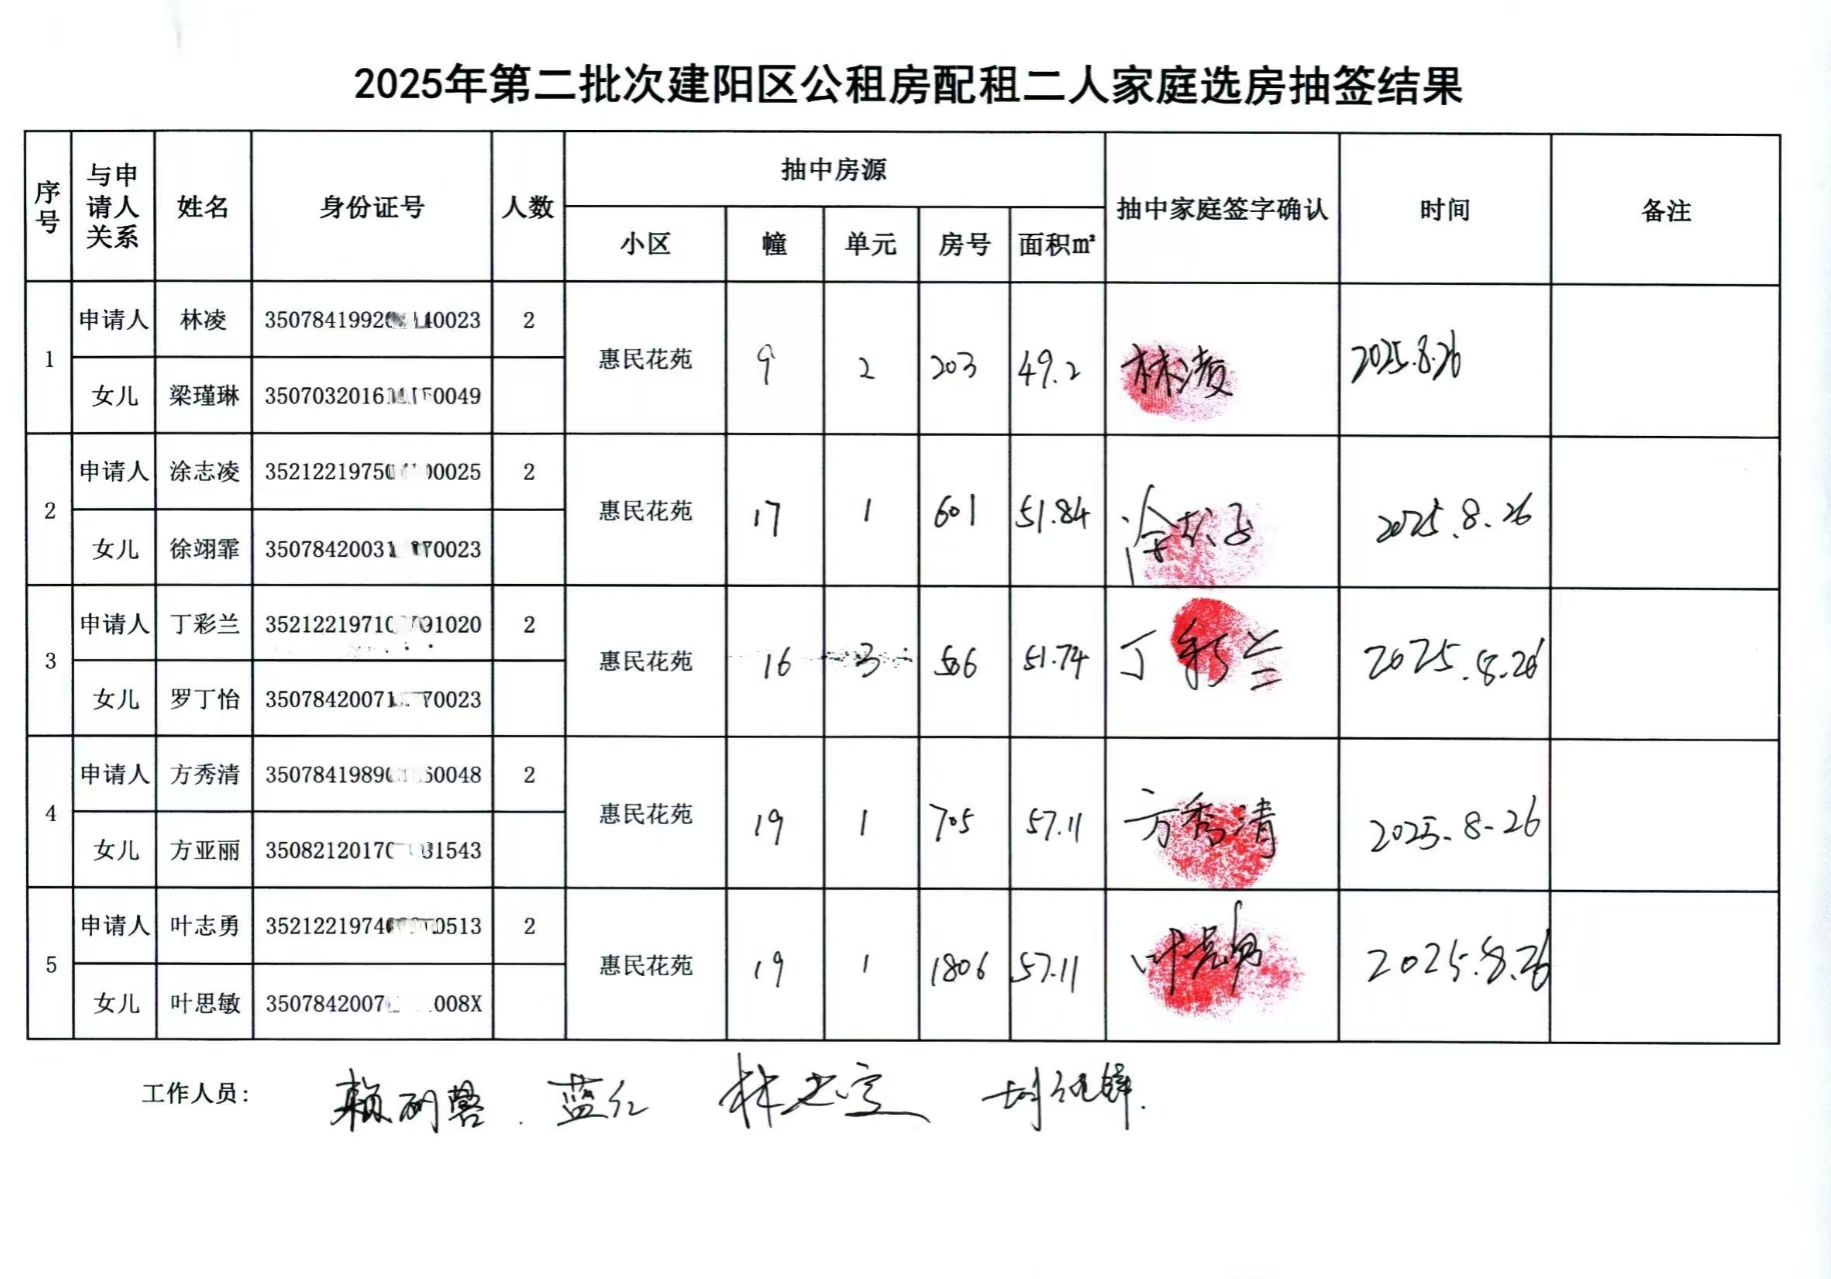 2025年第二批次建阳区公租房配租二人家庭选房抽签结果
序号 与申请人关系 姓名 身份证号 人数 抽中房源 抽中家庭签字确认 时间 备注
小区 幢 单元 房号 面积㎡
1 申请人 林凌 2 惠民花苑 9 2 203 49.2 林凌 2025.8.26
女儿 梁瑾琳
2 申请人 涂志凌 2 惠民花苑 17 1 601 51.84 2025.8.26
女儿 徐翊霏
3 申请人 丁彩兰 2 惠民花苑 16 3 506 51.74 丁彩兰 2025.8.26
女儿 罗丁怡
4 申请人 方秀清 2 惠民花苑 19 1 705 57.11 方秀清 2025.8.26
女儿 方亚丽
5 申请人 叶志勇 2 惠民花苑 19 1 1806 57.11 叶志勇 2025.8.26
女儿 叶思敏
工作人员: 蓝红